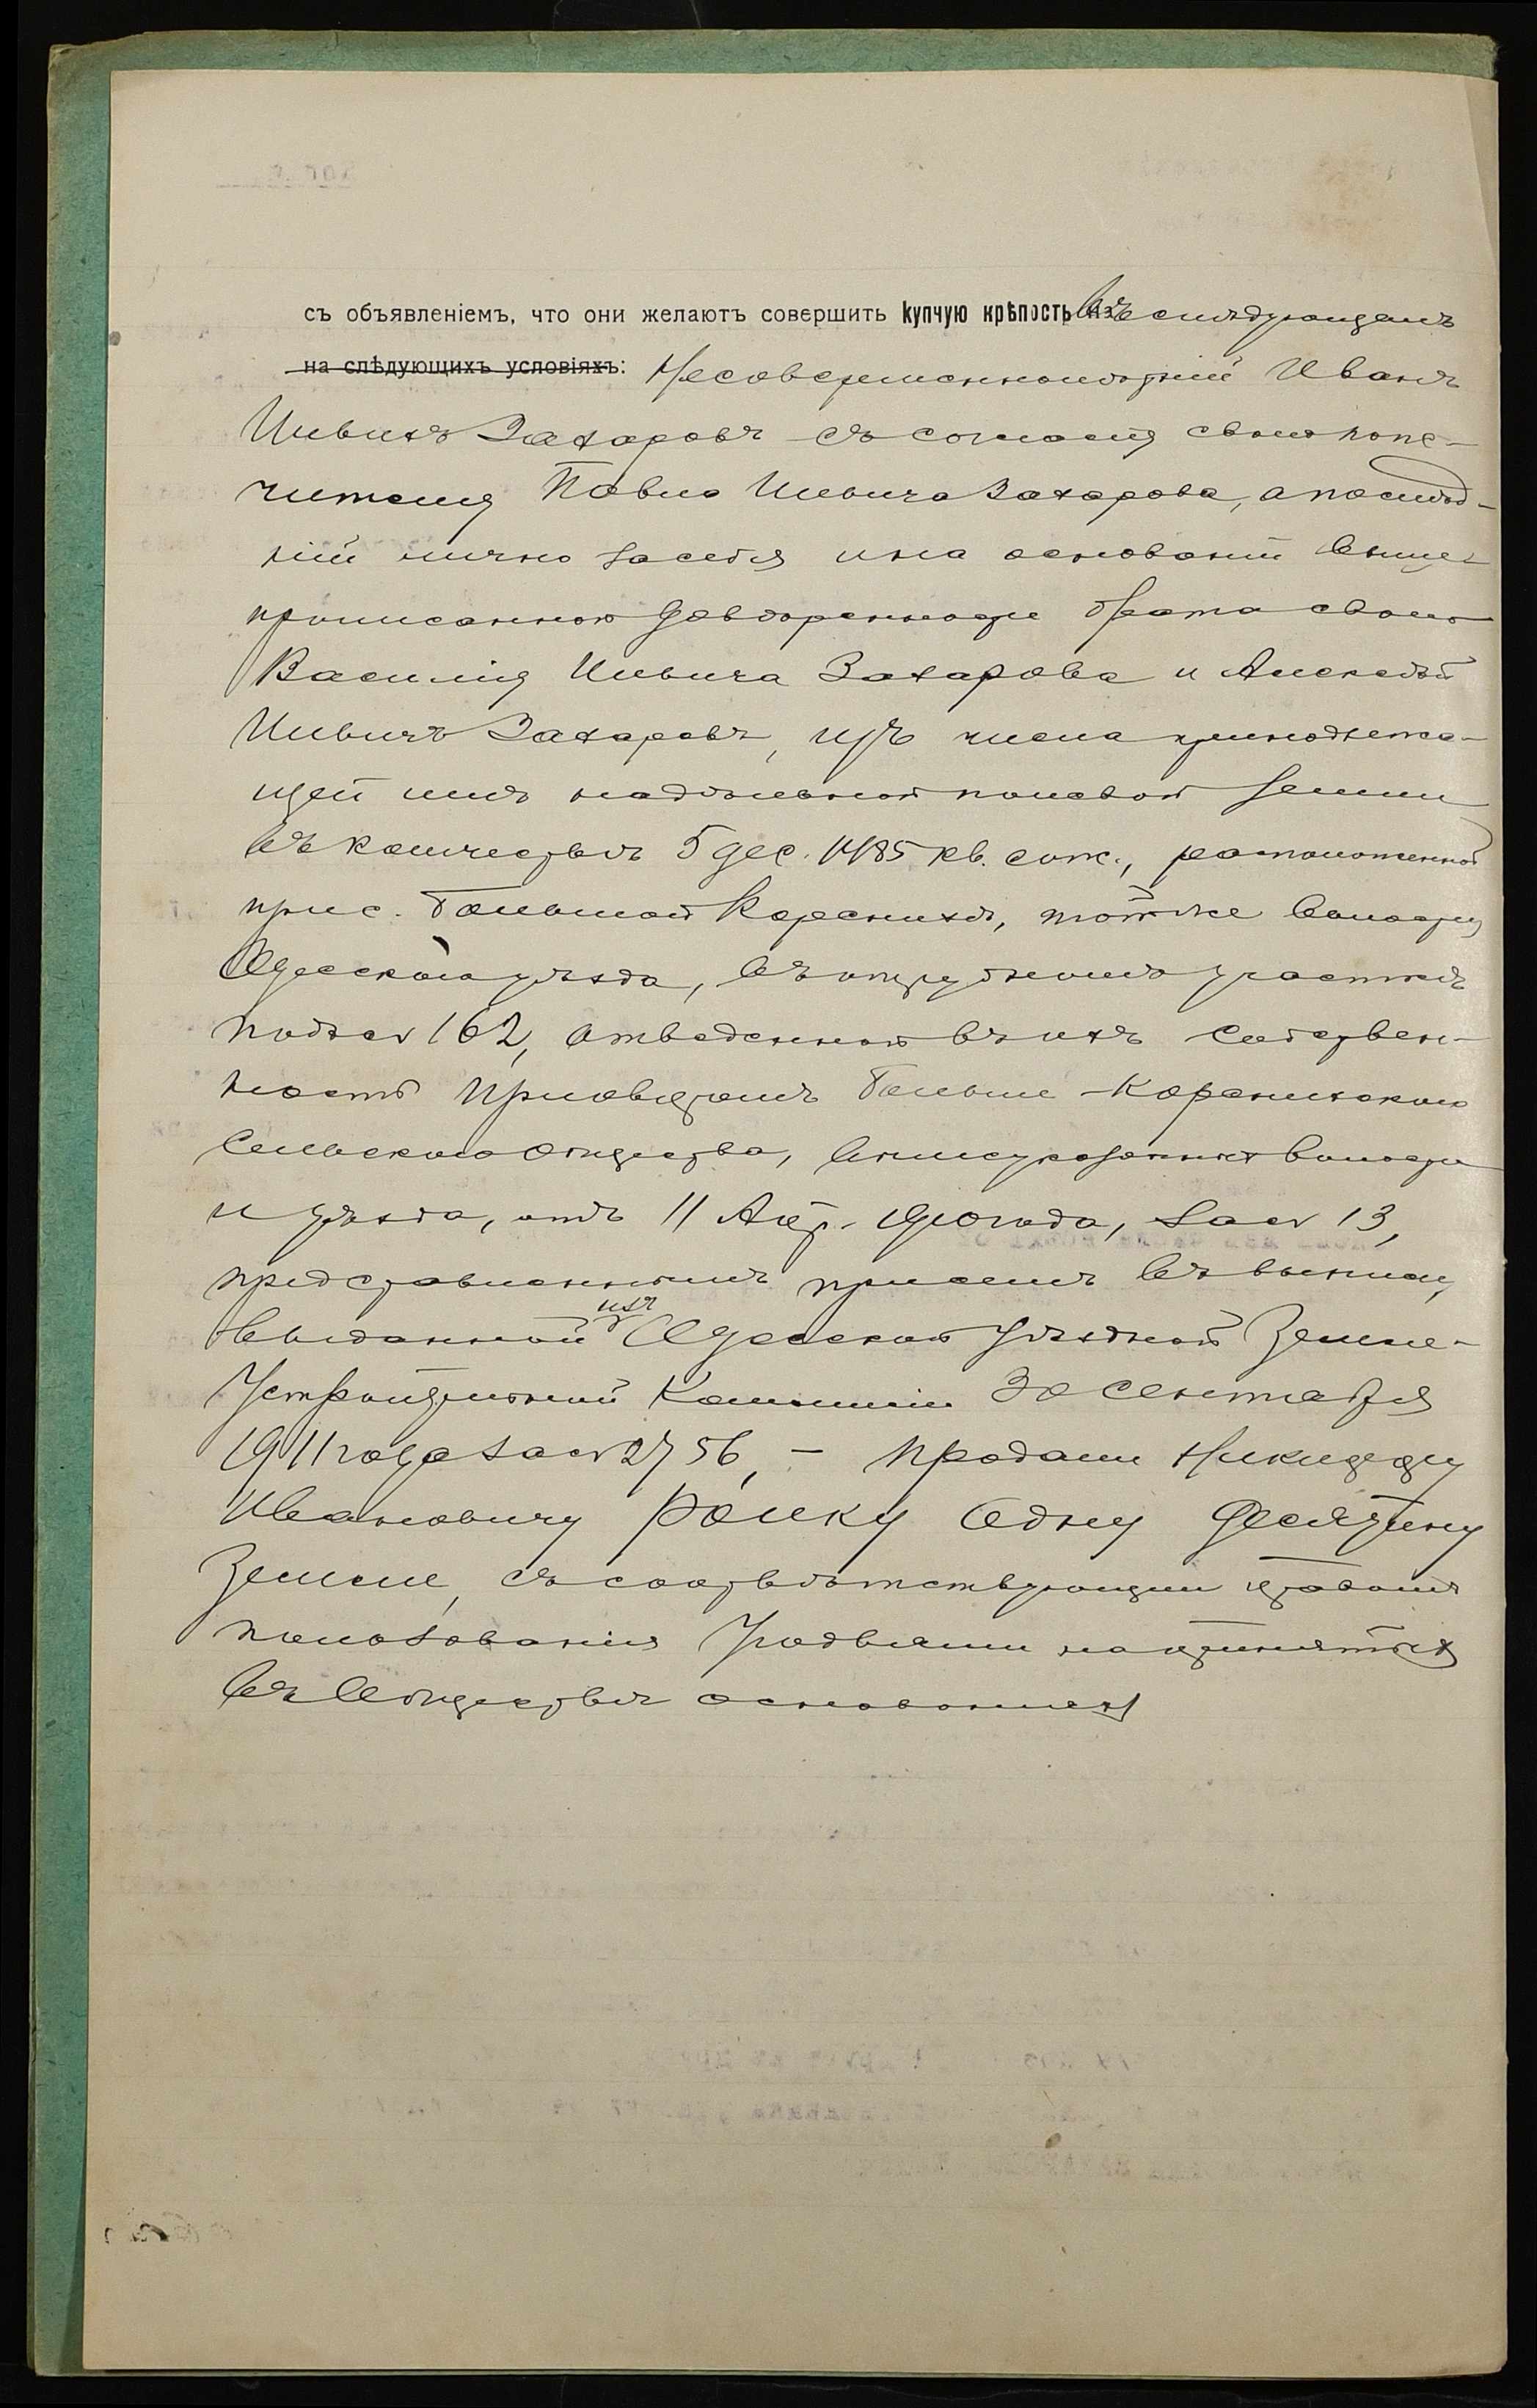 съ объявленіемъ, что они желаютъ совершить купчую крѣпость въ слѣдующемъ
на слѣдующихъ условіяхъ: Несовершеннолѣтній Иванъ
Ильичъ Захаровъ съ согласія своего попе-
чителя Павла Ильича Захарова, а послѣд-
ній лично за себя и на основаніи выше-
прописанной довѣренности брата своего
Василія Ильича Захарова и Алексѣй
Ильичъ Захаровъ, изъ числа принадлежа-
щей имъ надѣльной полевой земли
въ количествѣ 5 дес. 1485 кв. саж., расположенной
при с. Большой Коренихѣ, той же волости
Одесскаго уѣзда, въ отрубномъ участкѣ
подъ № 162, отведенной въ ихъ собствен-
ность приговоромъ Больше-Коренихскаго
сельскаго общества, вышеуказанныхъ волости
и уѣзда, отъ 11 Апр. 1910 года, за № 13,
представленнымъ при семъ въ выписи,
выданной изъ Одесской Уѣздной Земле-
Устроительной Коммиссіи 30 Сентября
1911 года за № 2756, – продали
Ивановичу Одну Десятину
Земли, съ соотвѣтствующимъ правомъ
пользованія угодьями на принятыхъ
въ Обществѣ основаніяхъ